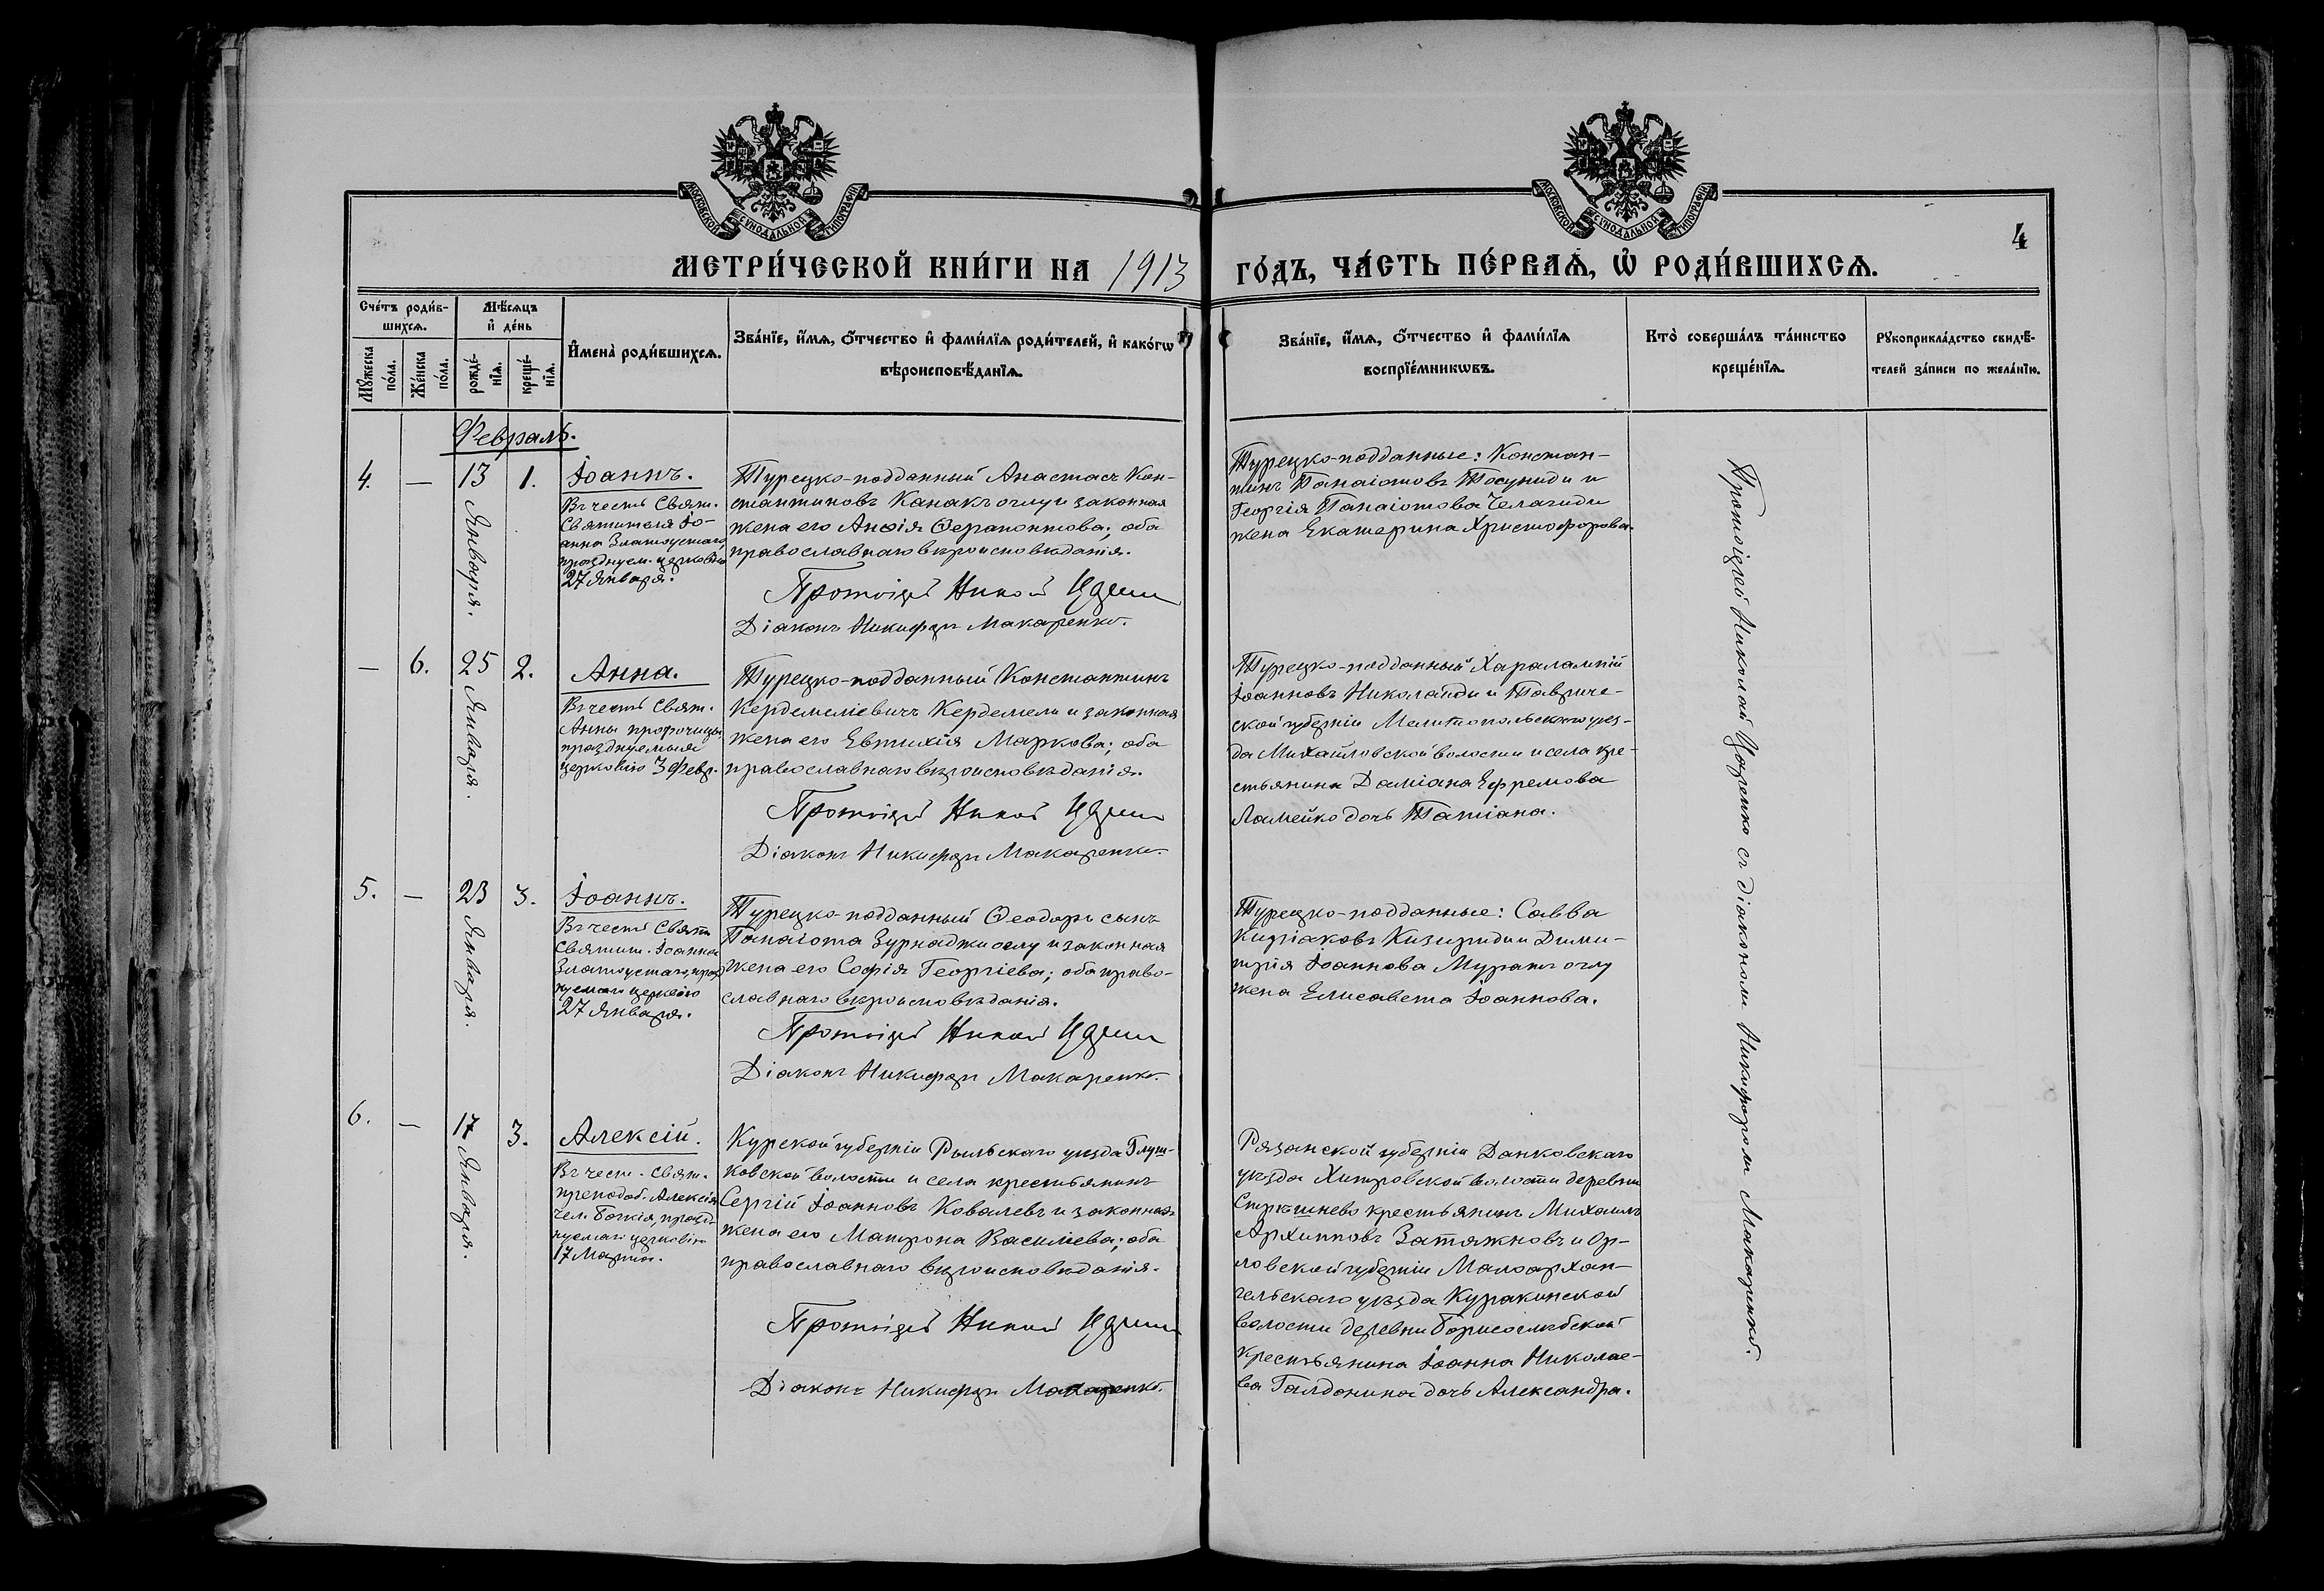 МОСКОВСКОЙ СѴНОДАЛЬНОЙ ТИПОГРАФІИ
МОСКОВСКОЙ СѴНОДАЛЬНОЙ ТИПОГРАФІИ
4
МЕТРИ́ЧЕСКОЙ КНИ́ГИ НА 1913 ГО́ДЪ, ЧА́СТЬ ПЕ́РВАѦ, Ѡ҆ РОДИ́ВШИХСѦ.
Сче́тъ роди́в-
шихсѧ.
Мꙋ́жеска по́ла.
Же́нска по́ла.
Мѣ́сѧцъ
и҆ де́нь
рожде́-
нїѧ.
креще́-
нїѧ.
И҆мена̀ роди́вшихсѧ.
Зва́нїе, и҆́мѧ, ѻ҆́тчество и҆ фами́лїѧ роди́телей, и҆ како́гѡ
вѣроисповѣ́данїѧ.
Зва́нїе, и҆́мѧ, ѻ҆́тчество и҆ фами́лїѧ
воспрїе́мникѡвъ.
Кто̀ соверша́лъ та́инство
креще́нїѧ.
Рꙋкоприкла́дство свидѣ́-
телей за́писи по жела́нїю.
Февраль.
4. — 13 Января. 1.
Іоаннъ.
Въ честь Свят.
Святителя Іо-
анна Златоустаго,
празднуем. церковію
27 Января.
Турецко-подданный Анастасъ Кон-
стантиновъ Канакъ оглу и законная
жена его Анѳія Ѳерапонтова; оба
православнаго вѣроисповѣданія.
Протоіерей Никол
Діаконъ Никифоръ Макаренко.
Турецко-подданные: Констан-
тинъ Панаіотовъ Тосуниди и
Георгія Панаіотова Челагиди
жена Екатерина Христофорова.
— 6. 25 Января. 2.
Анна.
Въ честь Свят.
Анны пророчицы,
празднуемыя
церковію 3 Февр.
Турецко-подданный Константинъ
Кердемеліевичъ Кердемели и законная
жена его Евтихія Маркова; оба
православнаго вѣроисповѣданія.
Протоіерей Никол
Діаконъ Никифоръ Макаренко.
Турецко-подданный Харалампій
Іоанновъ Николаиди и Тавриче-
ской губерніи Мелитопольскаго уѣз-
да Михайловской волости и села кре-
стьянина Даміана Ефремова
Ламейко дочь Татіана.
5. — 23 Января. 3.
Іоаннъ.
Въ честь Свят
Святит. Іоанна
Златоустаго, празд
нуемаго церковію
27 Января.
Турецко-подданный Ѳеодоръ сынъ
Панаіота Зурнаджи оглу и законная
жена его Софія Георгіева; оба право-
славнаго вѣроисповѣданія.
Протоіерей Никол
Діаконъ Никифоръ Макаренко.
Турецко-подданные: Савва
Киріаковъ Кизириди и Дими-
трія Іоаннова Муратъ оглу
жена Елисавета Іоаннова.
6. — 17 Января. 3.
Алексій.
Въ чест. Свят.
преподоб. Алексія
чел. Божія, празд-
нуемаго церковію
17 Марта.
Курской губерніи Рыльскаго уѣзда Глуш-
ковской волости и села крестьянинъ
Сергій Іоанновъ Ковалевъ и законная
жена его Матрона Василіева; оба
православнаго вѣроисповѣданія.
Протоіерей Никол
Діаконъ Никифоръ Макаренко.
Рязанской губерніи Данковскаго
уѣзда Хитровской волости деревни
Стрѣшнево крестьянинъ Михаилъ
Архипповъ Затяжновъ и Ор-
ловской губерніи Малоархан-
гельскаго уѣзда Куракинской
волости деревни Борисоглѣбской
крестьянина Іоанна Николае-
ва Галдонина дочь Александра.
Протоіерей Николай Царенко съ діакономъ Никифоромъ Макаренко.